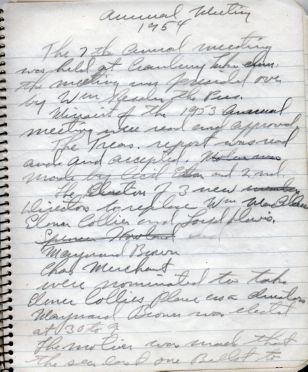 Annual Meeting
1954
The 7th annual meeting
was held at Cranberry
the meeting was presided over
by Wm the Pres.
Minutes of the 1953 Annual
meeting were read and approved
The Treas. report was read
and and accepted.
made by Cecil and 2nd.
The Election of 3 new
Directors to replace Wm
Elmer Collier and Lewis
Spencer Rowland
Maynard Brown
Chas Merchant
were nominated to take
Elmer Colliers place as a director
Maynard Brown was elected
at 30 to 9
The motion was made that
the sec. cast one Ballot to